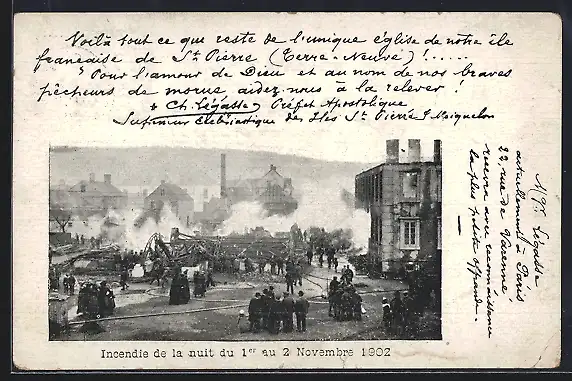 Voilà tout ce que reste de l'unique église de notre île
française de St Pierre (Terre-Neuve) !.....
"Pour l'amour de Dieu et au nom de nos braves
pêcheurs de morue, aidez-nous à la relever !
+ Ch. Légasse, Préfet Apostolique
Supérieur Ecclésiastique des Iles St Pierre & Miquelon
Mgr Légasse
actuellement à Paris
22, rue de Varenne,
recevra avec reconnaissance
la plus petite offrande.
Incendie de la nuit du 1er au 2 Novembre 1902